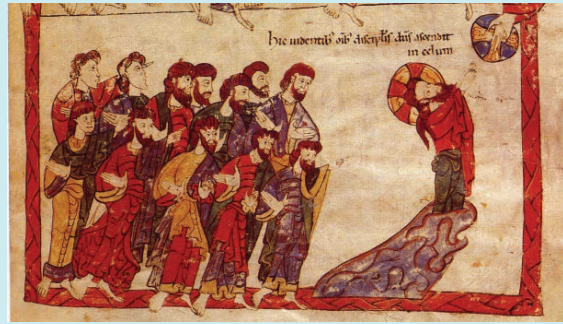 hic uidentib' oib' discipl'is d'ns ascendit
in celum